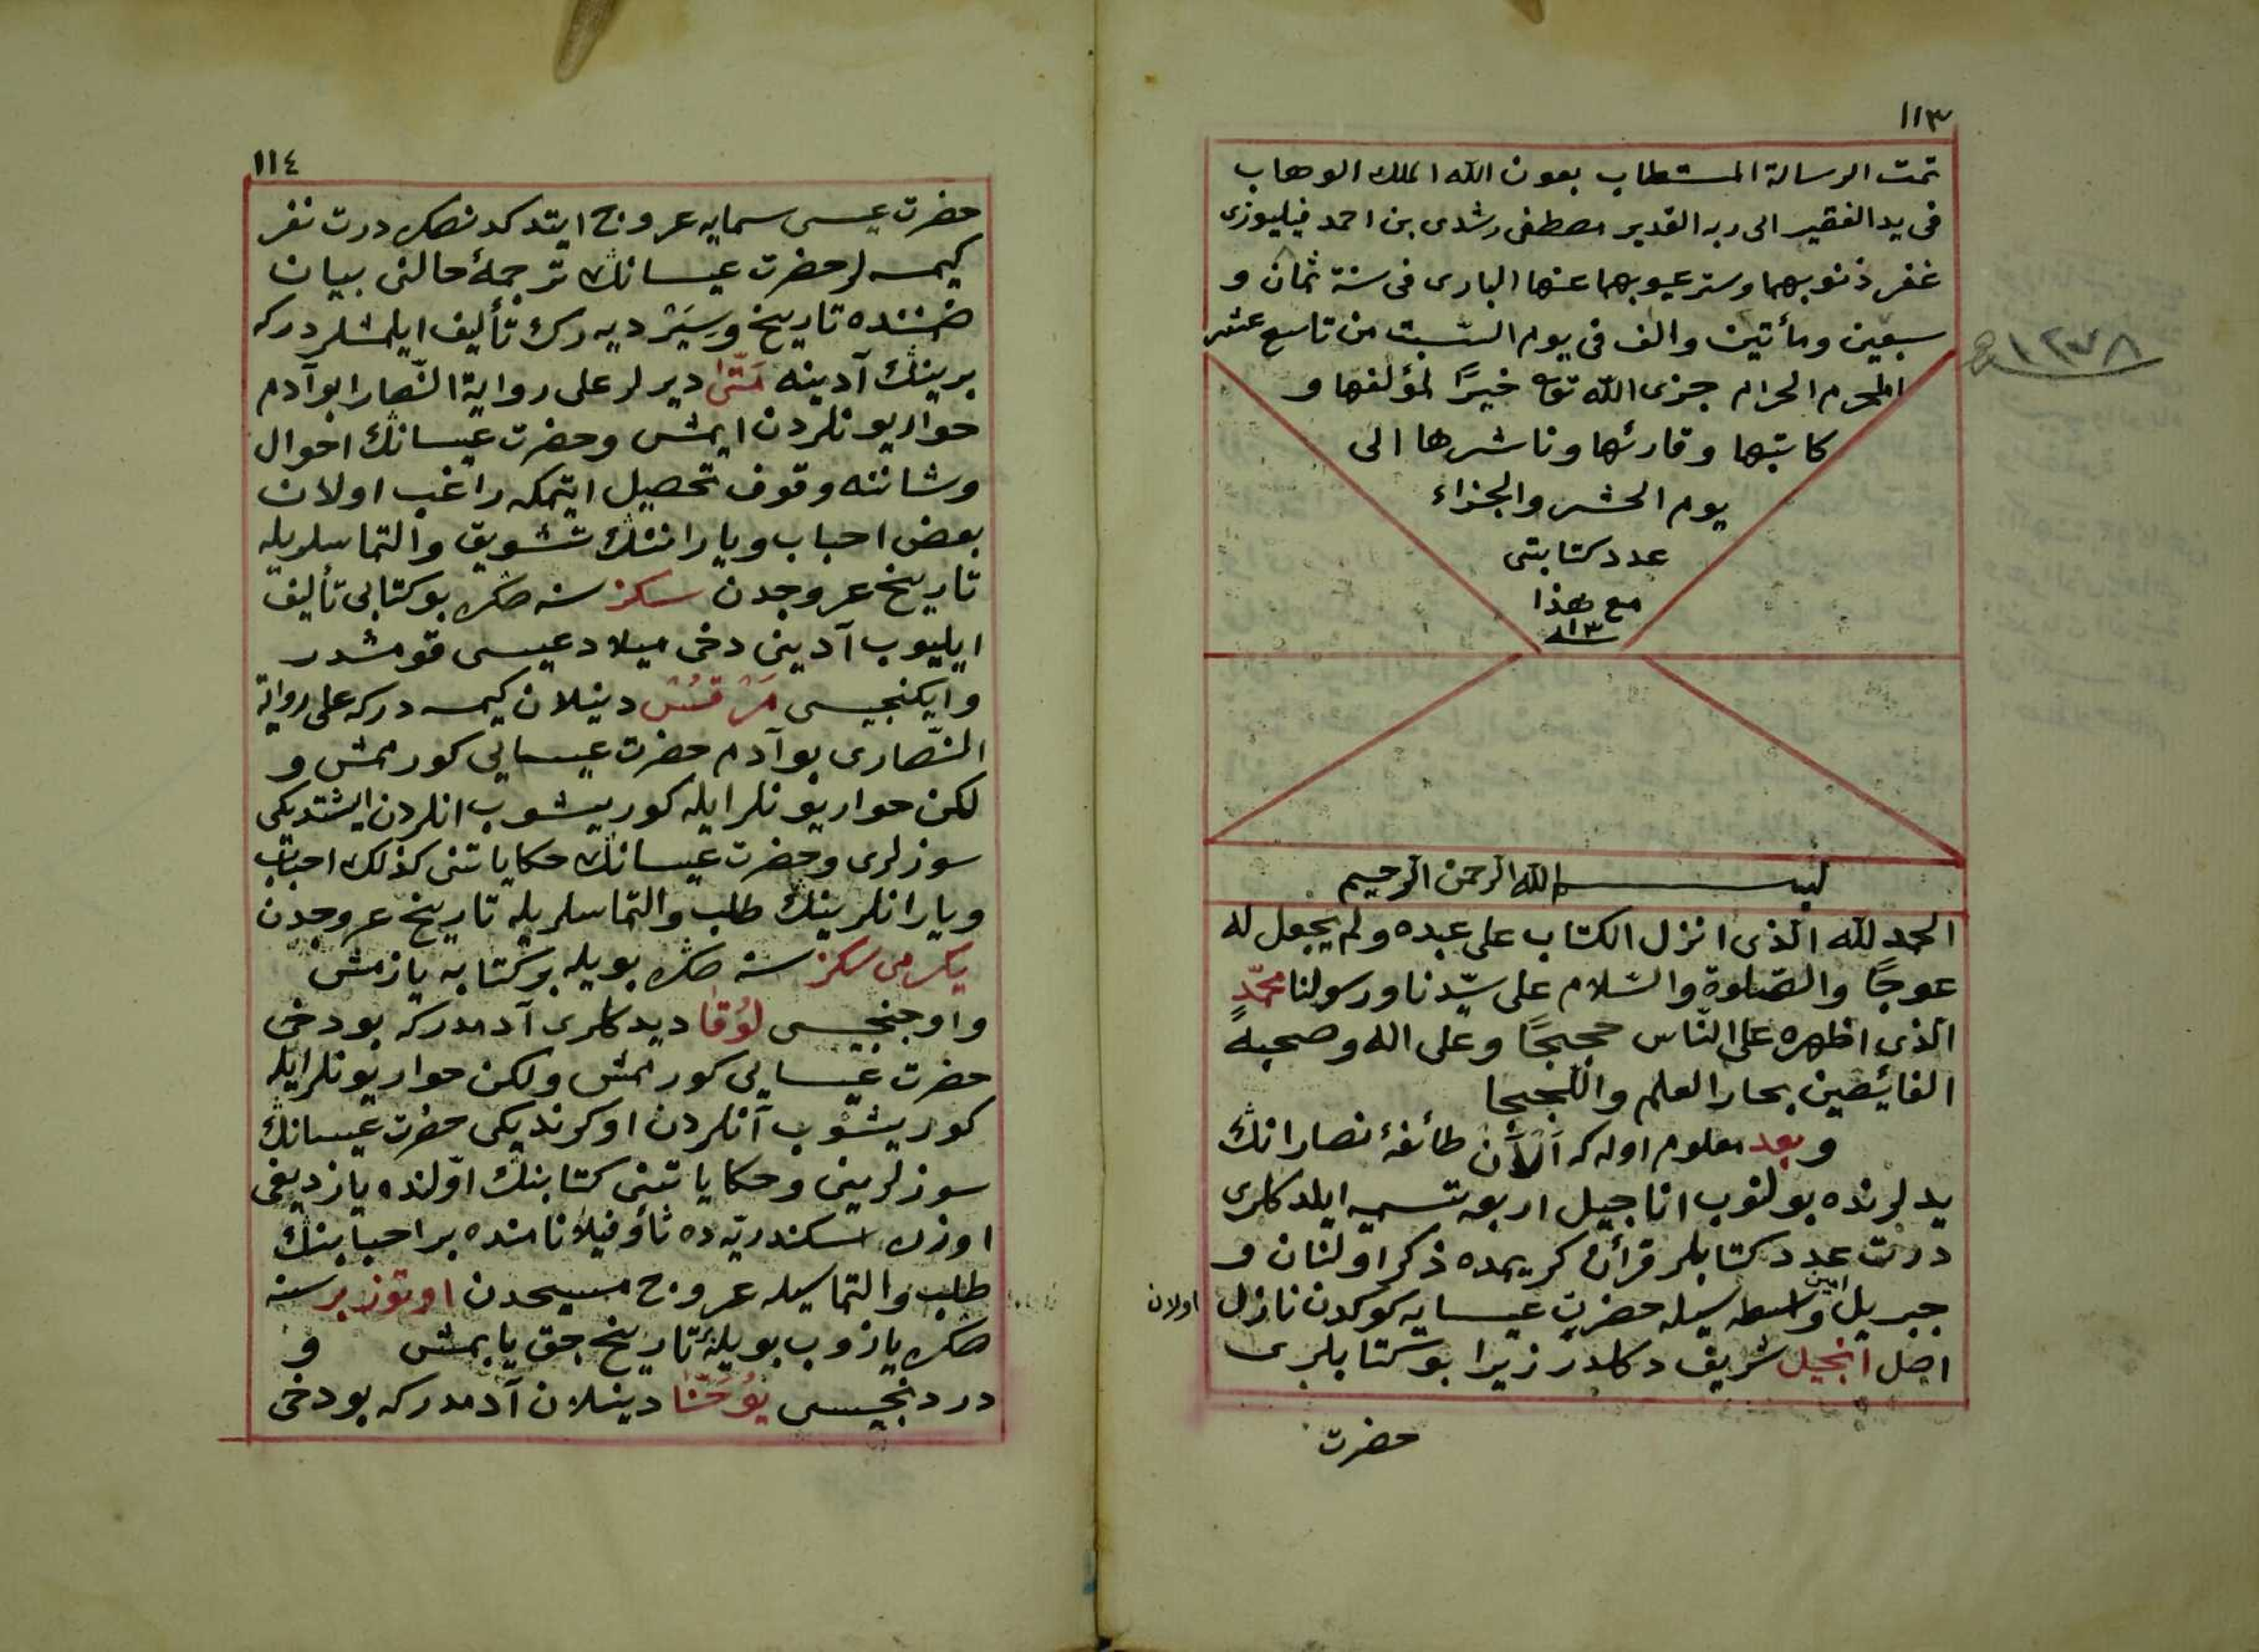 ١١٣
تمت الرسالة المستطاب بعون الله الملك الوهاب
فى يد الفقير الى ربه القدير مصطفى رشدى بن احمد فيليوزى
غفر ذنوبهما وستر عيوبهما عنهما البارى فى سنة ثمان و
سبعين ومأتين والف فى يوم السّبت من تاسع عشر
١٢٧٨
المحرم الحرام جزى الله تعا خيرًا لمؤلفها و
كاتبها وقارئها وناشرها الى
يوم الحشر والجزاء
عدد كتابتى
مع هذا
١٣
بسم الله الرحمن الرحيم
الحمد لله الّذى انزل الكتاب على عبده ولم يجعل له
عوجًا والصّلوة والسّلام على سيّدنا ورسولنا محمّدٍ
الّذى اظهره على النّاس حججًا وعلى اله وصحبه
الفائضين بحار العلم واللّججا
وبعد معلوم اوله كه اَلْآن طائفۀ نصارانڭ
يدلرنده بولنوب اناجيل اربعه تسميه ايلدكلرى
درت عدد كتابلر قرأن كريمده ذكر اولنان و
جبريل امين واسطه سيله حضرت عيسايه كوكدن نازل اولان
اصل انجيل شريف دكلدر زيرا بو كتابلرى
حضرت
١١٤
حضرت عيسى سمايه عروج ايتدكدنصكره درت نفر
كيمسه لر حضرت عيسانڭ ترجمۀ حالنى بيان
ضمننده تاريخ وسِيَر ديه رك تأليف ايلمشلردركه
برينڭ آدينه مَتّىٰ ديرلر على رواية النّصارا بو آدم
حواريونلردن ايمش وحضرت عيسانڭ احوال
وشاننه وقوف تحصيل ايتمكه راغب اولان
بعض احباب ويارانڭ تشويق والتماسلريله
تاريخ عروجدن سكز سنه صكره بو كتابى تأليف
ايليوب آدينى دخى ميلاد عيسى قومشدر
وايكنجيسى مَرْقُسْ دينلان كيمسه دركه على رواية
النّصارى بو آدم حضرت عيسايى كورممش و
لكن حواريونلر ايله كوريشوب انلردن ايشتديكى
سوزلرى وحضرت عيسانڭ حكاياتنى كذلك احباب
ويارانلرينڭ طلب والتماسلريله تاريخ عروجدن
يكرمى سكز سنه صكره بويله بو كتابه يازمش
واوچنجيسى لُوقَا ديدكلرى آدمدركه بودخى
حضرت عيسايى كورممش ولكن حواريونلر ايله
كوريشوب آنلردن اوكرنديكى حضرت عيسانڭ
سوزلرينى وحكاياتنى كتابنڭ اوّلنده يازديغى
اوزره اسكندريّه ده ثاوفيلا نامنده بر احبابنڭ
طلب والتماسيله عروج مسيحدن اوتوز بر سنه
صكره يازوب بويله تاريخ جق ياپمش و
دردنجيسى يُوحَنَّا دينلان آدمدركه بودخى